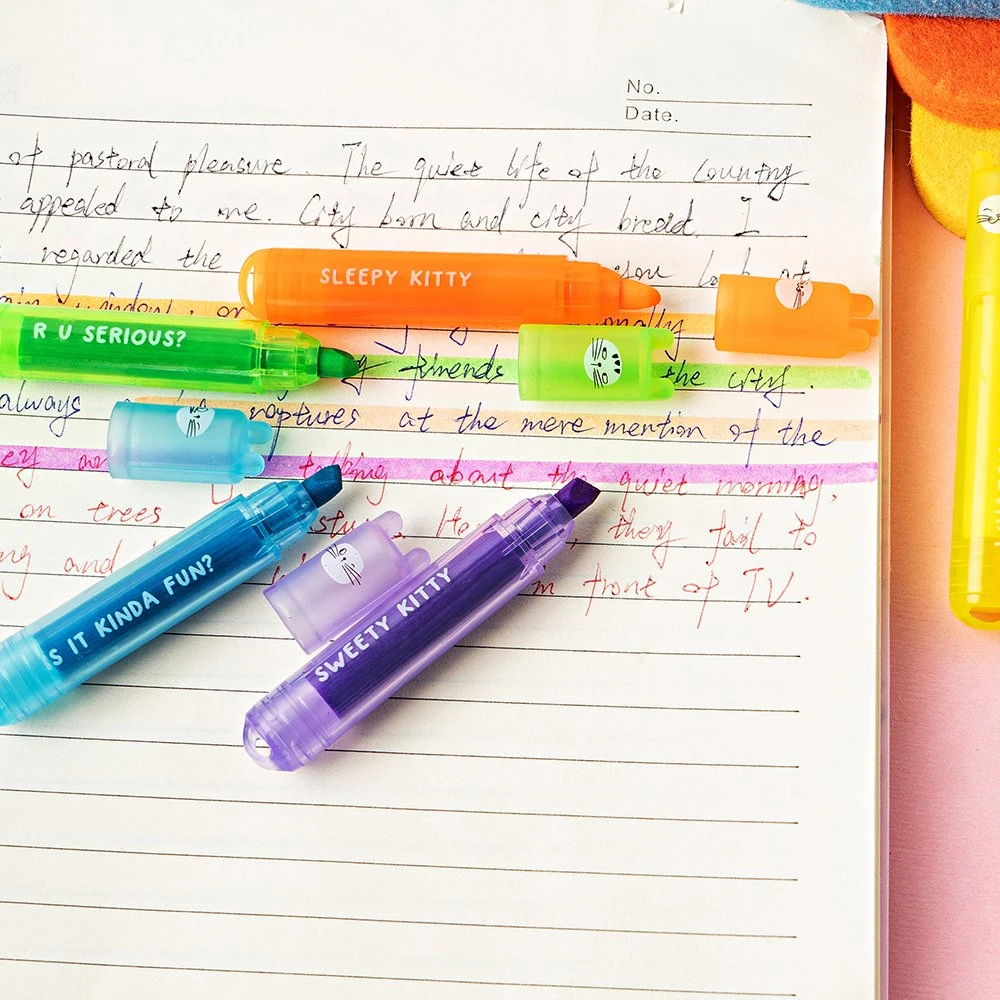 No.
Date.
of pastoral pleasure. The quiet life of the country
appealed to me. City born and city bread. I
regarded the you
SLEEPY KITTY
window, or
R U SERIOUS?
friends the city.
always raptures at the mere mention of the
talking about the quiet morning,
on trees they fail to
and in front of TV.
S IT KINDA FUN?
SWEETY KITTY